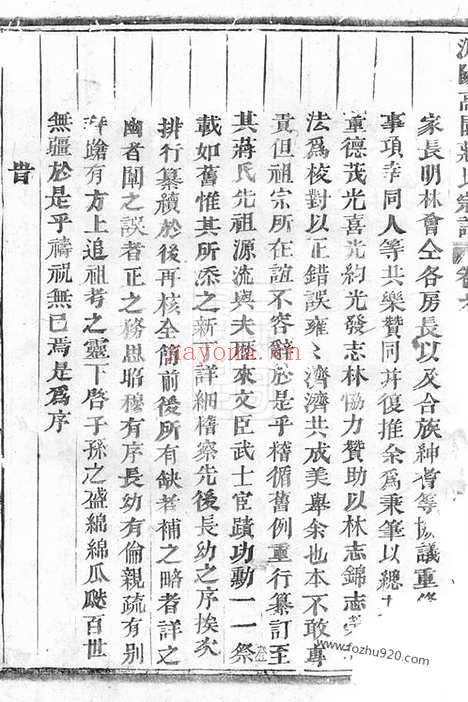 家長明林會仝各房長以及合族紳耆等協議重修
事項幸同人等共樂贊同并復推余為秉筆以總
董德茂光喜光約光發志林協力贊助以林志錦志
法為校對以正錯誤雍〻濟濟共成美舉余也本不敢專
責但祖宗所在誼不容辭於是乎稽循舊例重行纂訂至
其蔣氏先祖源流與夫歷來文臣武士宦蹟功動一一祭
載如舊惟其所添之新丁詳細稽察先後長幼之序挨次
排行纂續於後再核全簡前後所有缺者補之略者詳之
幽者闡之誤者正之務思昭穆有序長幼有倫親疏有別
瞻有方上追祖考之靈下啓子孫之盛綿綿瓜瓞百世
無疆於是乎禱祝無已焉是為序
旹
nayona.cn
www.fozhu920.com